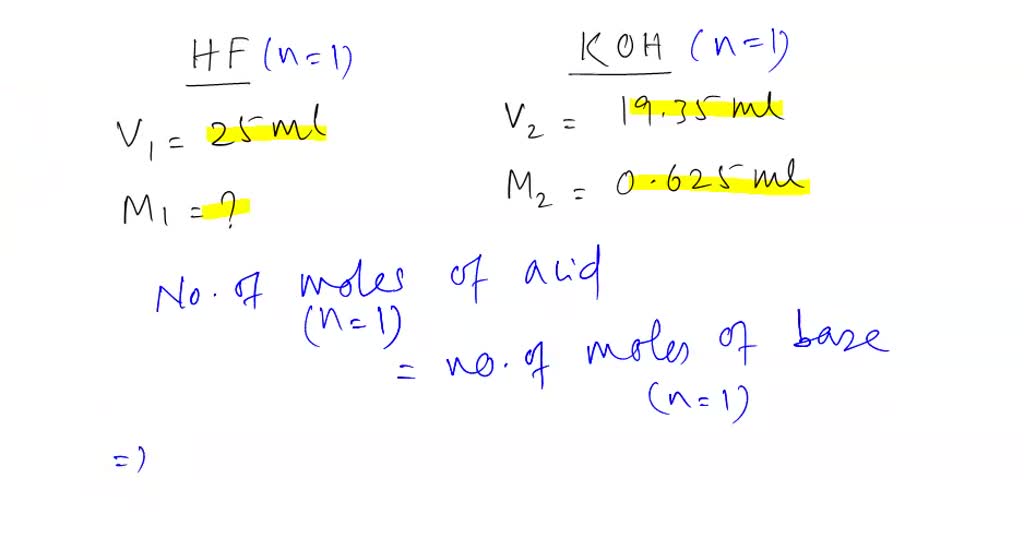 HF (n=1)
V₁ = 25 ml
M₁ = ?
KOH (n=1)
V₂ = 19.35 ml
M₂ = 0.625 ml
No. of moles of acid
(n=1)
= no. of moles of base
(n=1)
=)